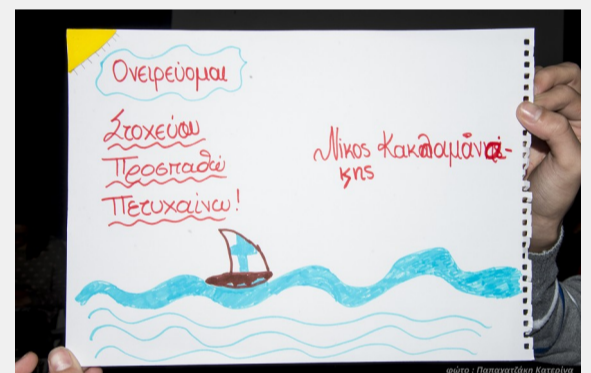 Ονειρεύομαι
Στοχεύω
Προσπαθώ
Πετυχαίνω!
Νίκος Κακλαμάνά-
κης
φώτο : Παπαχατζάκη Κατερίνα